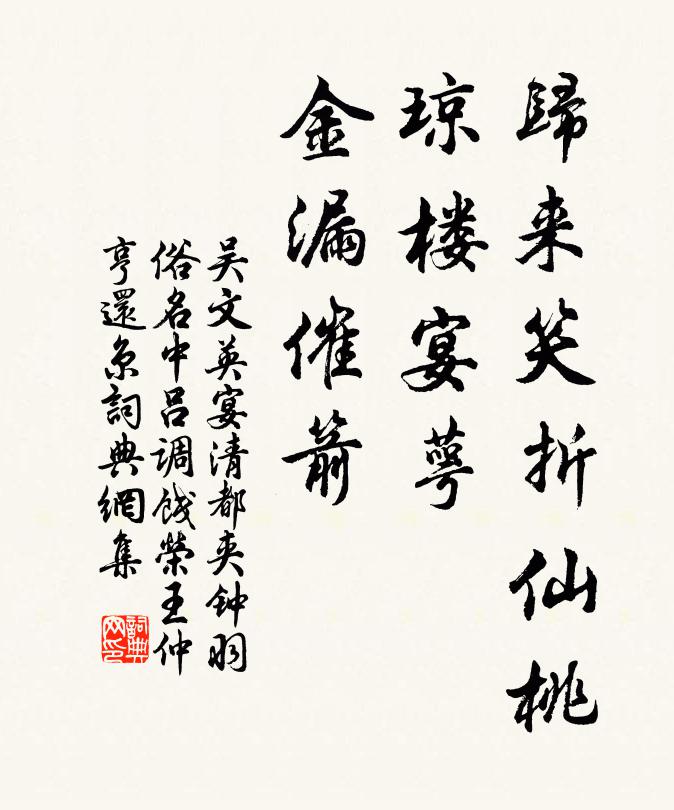 歸来笑折仙桃
琼楼宴萼
金漏催箭
吴文英宴清都夹钟羽
俗名中吕调餞榮王仲
亨還京詞典網集
詞典网印